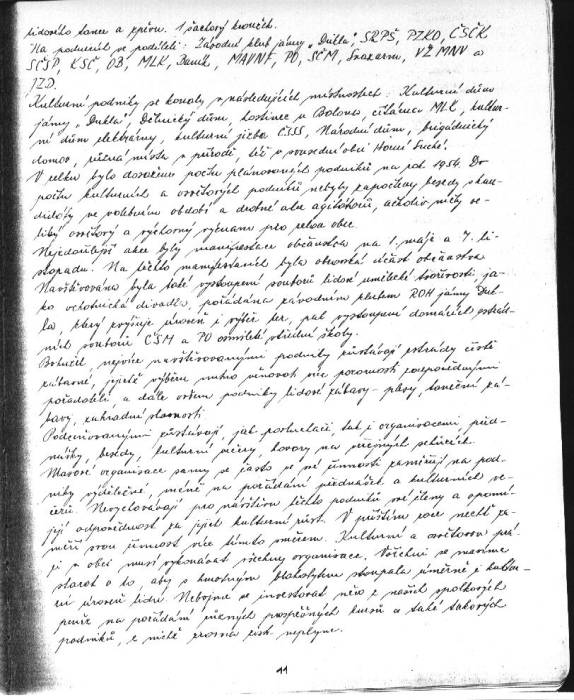 lidového tance a zpěvu. 1 šachový kroužek.
Na podnicích se podíleli: Závodní klub jámy "Dukla", SRPŠ, PZKO, ČSČK
SČSP, KSČ, OB, MLK, MAVNF, PO, SČM, Svazarm, VŽ MNV a
JZD.
Kulturní podniky se konaly v následujících místnostech: Kulturní dům
jámy "Dukla", Dělnický dům, hostinec u Bolona, čítárna MLK, kultur-
ní dům elektrárny, kulturní jizba ČSSS, Národní dům, brigádnický
domov, různá místa v přírodě, též v sousední obci Horní Suché.
V celku bylo dosaženo počtu plánovaných podniků na rok 1954. Do
počtu kulturních a osvětových podniků nebyly započteny besedy s kan-
didáty ve volebním období a drobné akce agitátorů, ačkoliv měly ve-
liký osvětový a výchovný význam pro celou obec.
Nejzdařilejší akce byly manifestace občanstva na 1. máje a 7. li-
stopadu. Na těchto manifestacích byla obrovská účast občanstva
Navštěvována byla také vystoupení souborů lidové umělecké tvořivosti, ja-
ko ochotnická divadla, pořádána závodním klubem ROH jámy Duk-
la, který zvyšuje úroveň i výběr her, pak vystoupení domácích
souborů ČSM a PO osmileté střední školy.
Bohužel, nejvíce navštěvovanými podniky zůstávají estrády čistě
zábavné, jejichž výběru nutno věnovat více pozornosti zodpovědnými
pořadateli a dále ovšem podniky lidové zábavy - plesy, taneční zá-
bavy, zahradní slavnosti.
Podceňovanými zůstávají, jak posluchači, tak i organisacemi, před-
nášky, besedy, kulturní večery, hovory na veřejných schůzích.
Masové organisace samy se často ve své činnosti zaměřují na pod-
niky výdělečné, méně na pořádání přednášek a kulturních ve-
čerů. Nevychovávají pro návštěvu těchto podniků své členy a opomí-
její odpovědnost za jejich kulturní růst. V příštím roce nechť za-
měří svou činnost více tímto směrem. Kulturní a osvětovou prá-
ci v obci musí vykonávat všechny organisace. Všichni se musíme
starat o to, aby s hmotným blahobytem stoupala úměrně i kultur-
ní úroveň lidu. Nebojme se investovat něco z našich spolkových
peněz na pořádání různých prospěšných kursů a také takových
podniků, z nichž zrovna zisk neplyne.
11